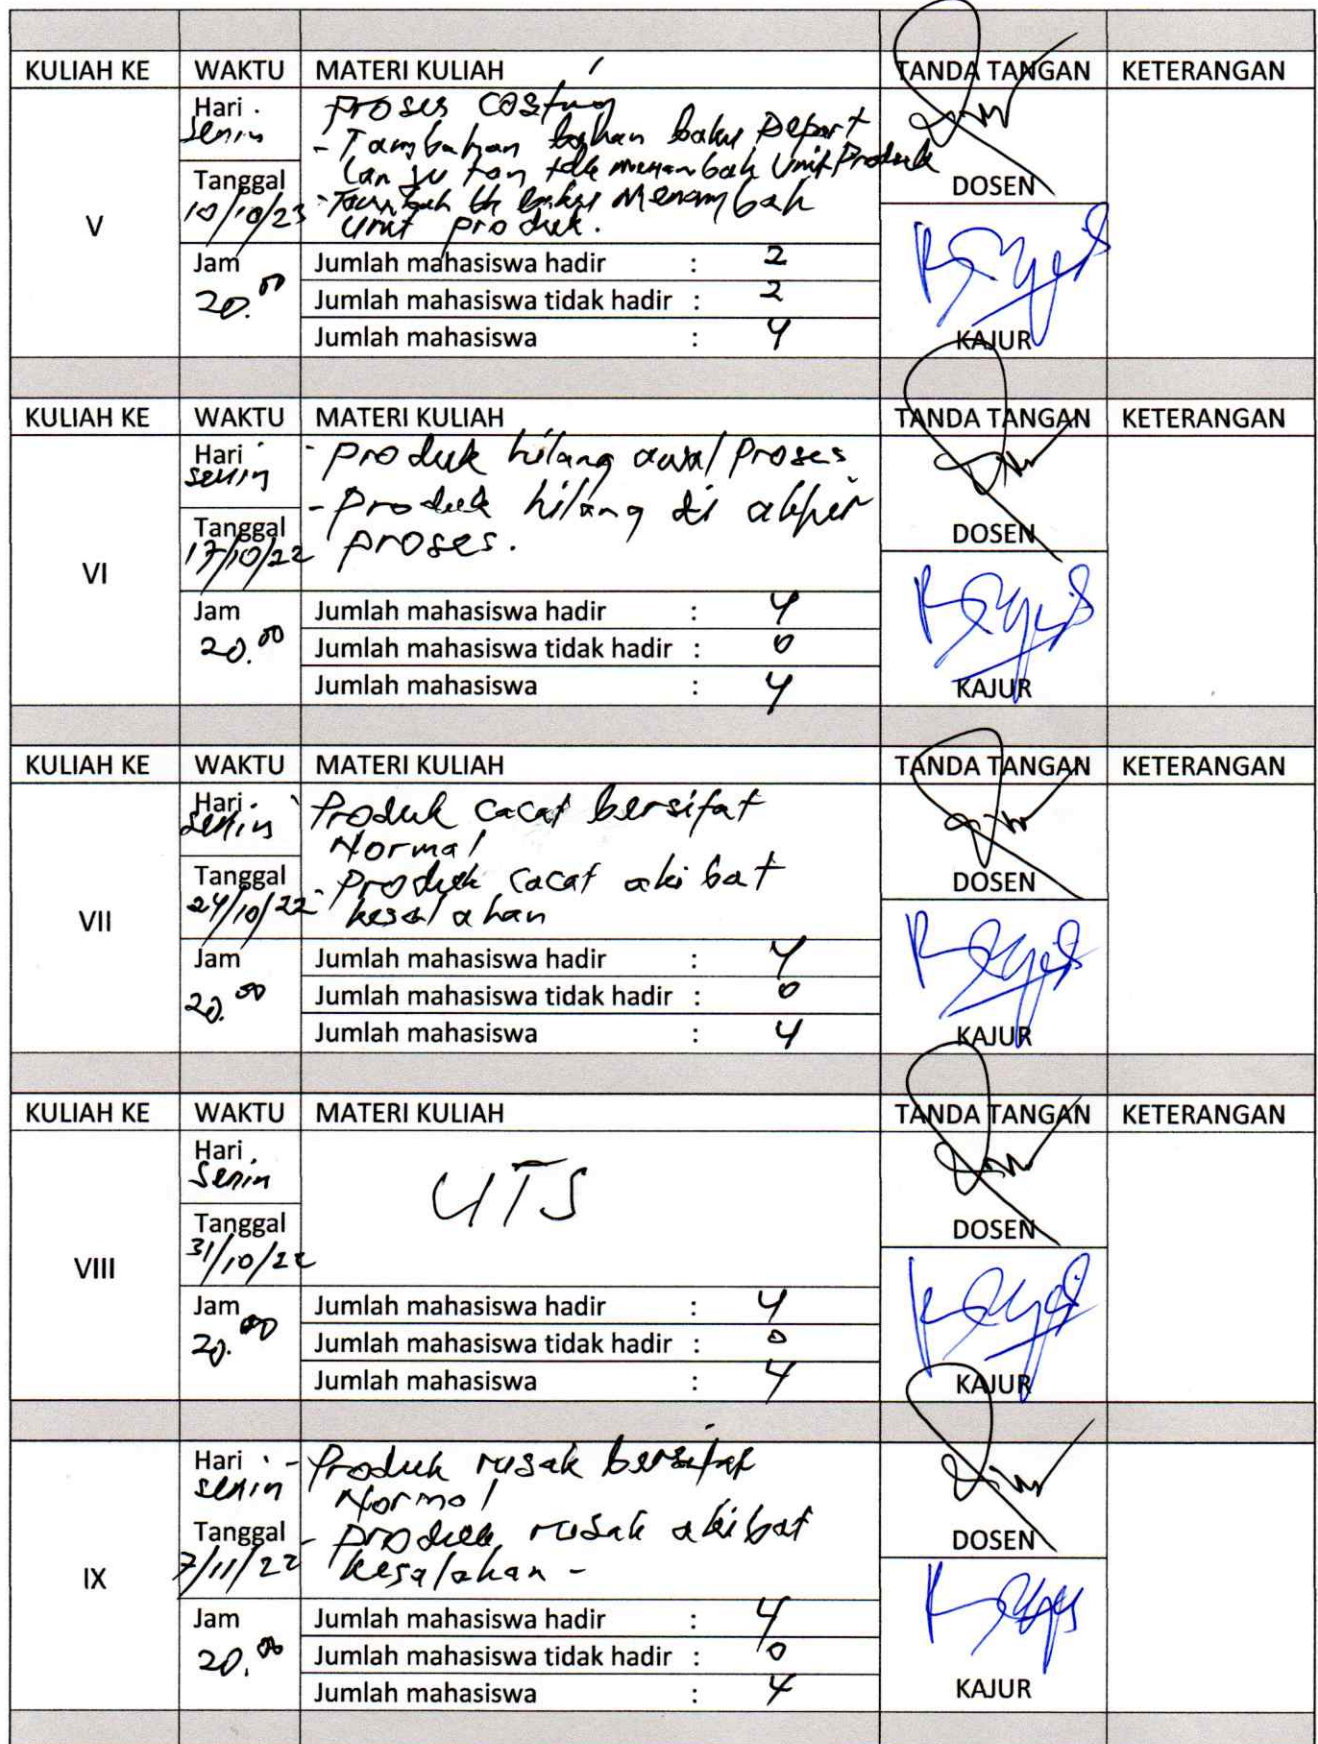 KULIAH KE WAKTU MATERI KULIAH TANDA TANGAN KETERANGAN
V
Hari
Senin
Tanggal
10/10/23
Jam
20.00
Proses Costing
- Tambahan bahan baku Depart
Lanjutan tdk menambah Unit Produk
- Tambah bb baku Menambah
Unit produk.
Jumlah mahasiswa hadir : 2
Jumlah mahasiswa tidak hadir : 2
Jumlah mahasiswa : 4
DOSEN
KAJUR
KULIAH KE WAKTU MATERI KULIAH TANDA TANGAN KETERANGAN
VI
Hari
Senin
Tanggal
17/10/22
Jam
20.00
- Produk hilang awal Proses
- Produk hilang di akhir
proses.
Jumlah mahasiswa hadir : 4
Jumlah mahasiswa tidak hadir : 0
Jumlah mahasiswa : 4
DOSEN
KAJUR
KULIAH KE WAKTU MATERI KULIAH TANDA TANGAN KETERANGAN
VII
Hari
Senin
Tanggal
24/10/22
Jam
20.00
Produk cacat bersifat
Normal
- Produk cacat akibat
kesalahan
Jumlah mahasiswa hadir : 4
Jumlah mahasiswa tidak hadir : 0
Jumlah mahasiswa : 4
DOSEN
KAJUR
KULIAH KE WAKTU MATERI KULIAH TANDA TANGAN KETERANGAN
VIII
Hari
Senin
Tanggal
31/10/22
Jam
20.00
UTS
Jumlah mahasiswa hadir : 4
Jumlah mahasiswa tidak hadir : 0
Jumlah mahasiswa : 4
DOSEN
KAJUR
IX
Hari
Senin
Tanggal
7/11/22
Jam
20.00
- Produk rusak bersifat
Normal
- Produk rusak akibat
kesalahan -
Jumlah mahasiswa hadir : 4
Jumlah mahasiswa tidak hadir : 0
Jumlah mahasiswa : 4
DOSEN
KAJUR